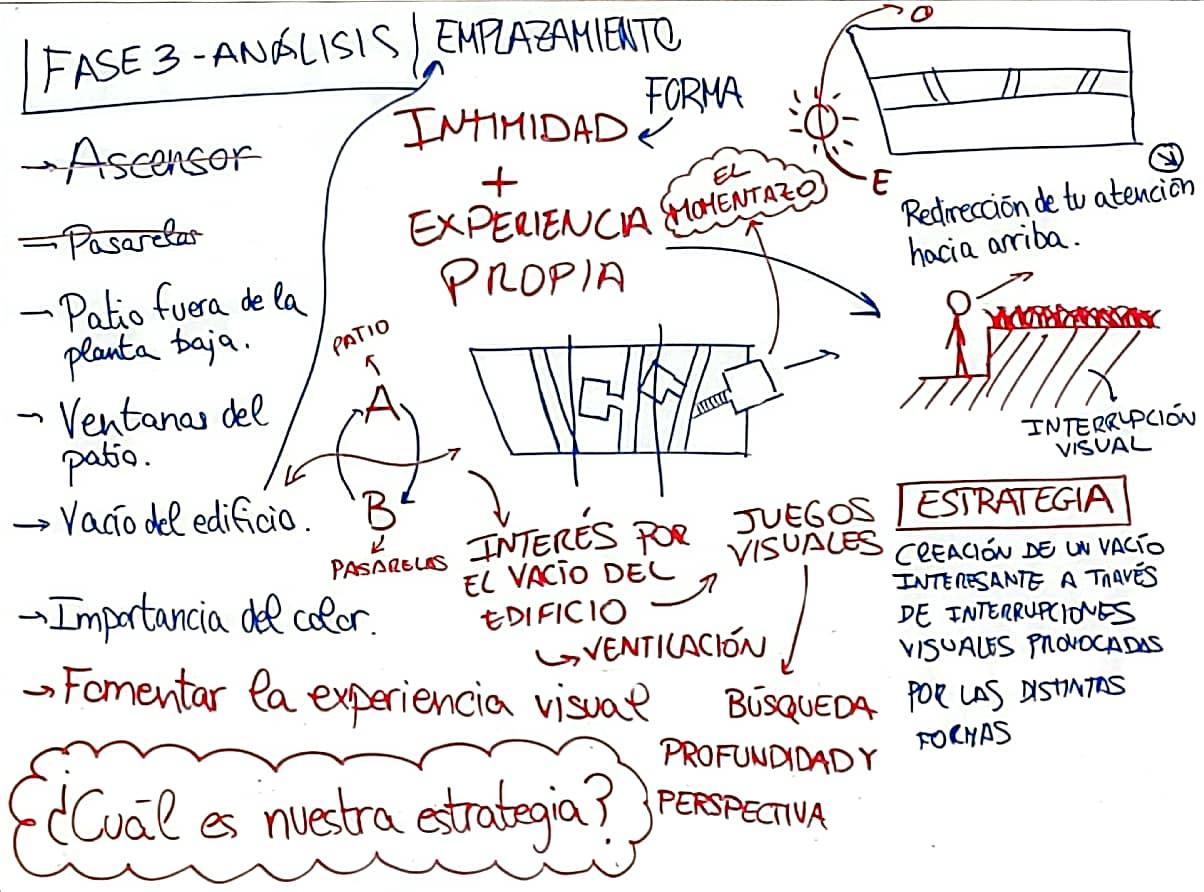 FASE 3 - ANÁLISIS
EMPLAZAMIENTO
→ Ascensor
— Pasarelas
→ Patio fuera de la
planta baja.
→ Ventanas del
patio.
→ Vacío del edificio.
→ Importancia del color.
→ Fomentar la experiencia visual
¿Cuál es nuestra estrategia?
FORMA
INTIMIDAD
+
EXPERIENCIA
PROPIA
EL
MOMENTAZO
PATIO
A
B
PASARELAS
INTERÉS POR
EL VACÍO DEL
EDIFICIO
VENTILACIÓN
JUEGOS
VISUALES
BÚSQUEDA
PROFUNDIDAD Y
PERSPECTIVA
O
E
Redirección de tu atención
hacia arriba.
INTERRUPCIÓN
VISUAL
ESTRATEGIA
CREACIÓN DE UN VACÍO
INTERESANTE A TRAVÉS
DE INTERRUPCIONES
VISUALES PROVOCADAS
POR LAS DISTINTAS
FORMAS